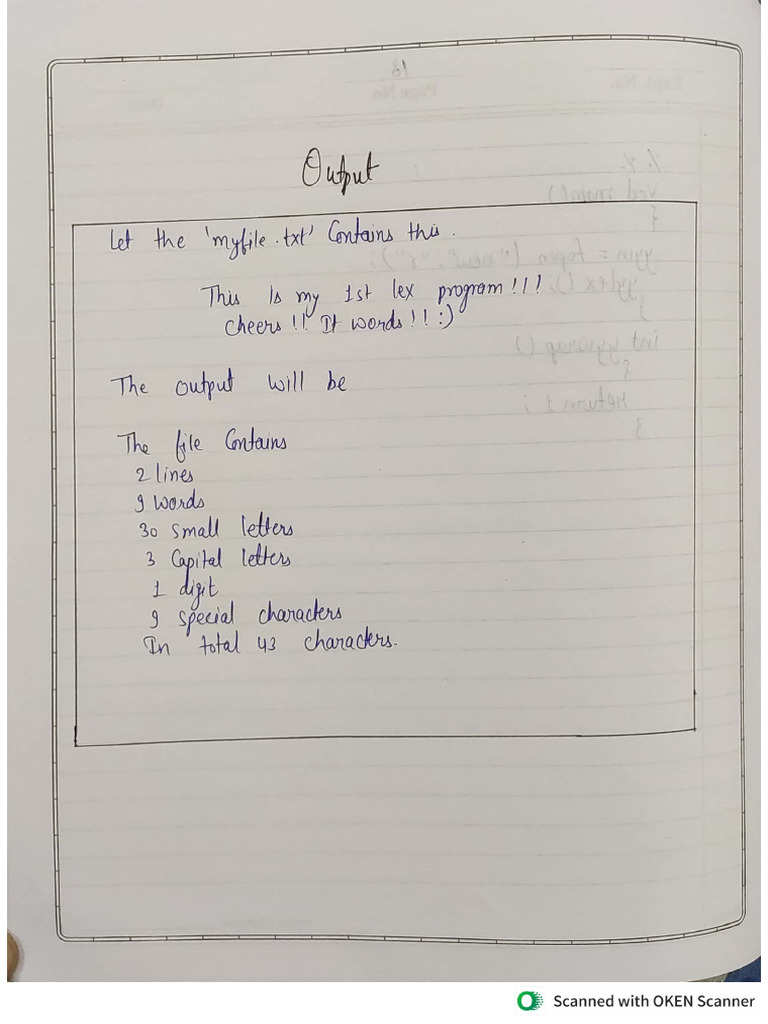 Output
Let the 'myfile.txt' Contains this.
This Is my 1st lex program!!!
cheers!! It words!! :)
The output will be
The file Contains
2 lines
9 words
30 small letters
3 Capital letters
1 digit
9 special characters
In total 43 characters.
Scanned with OKEN Scanner